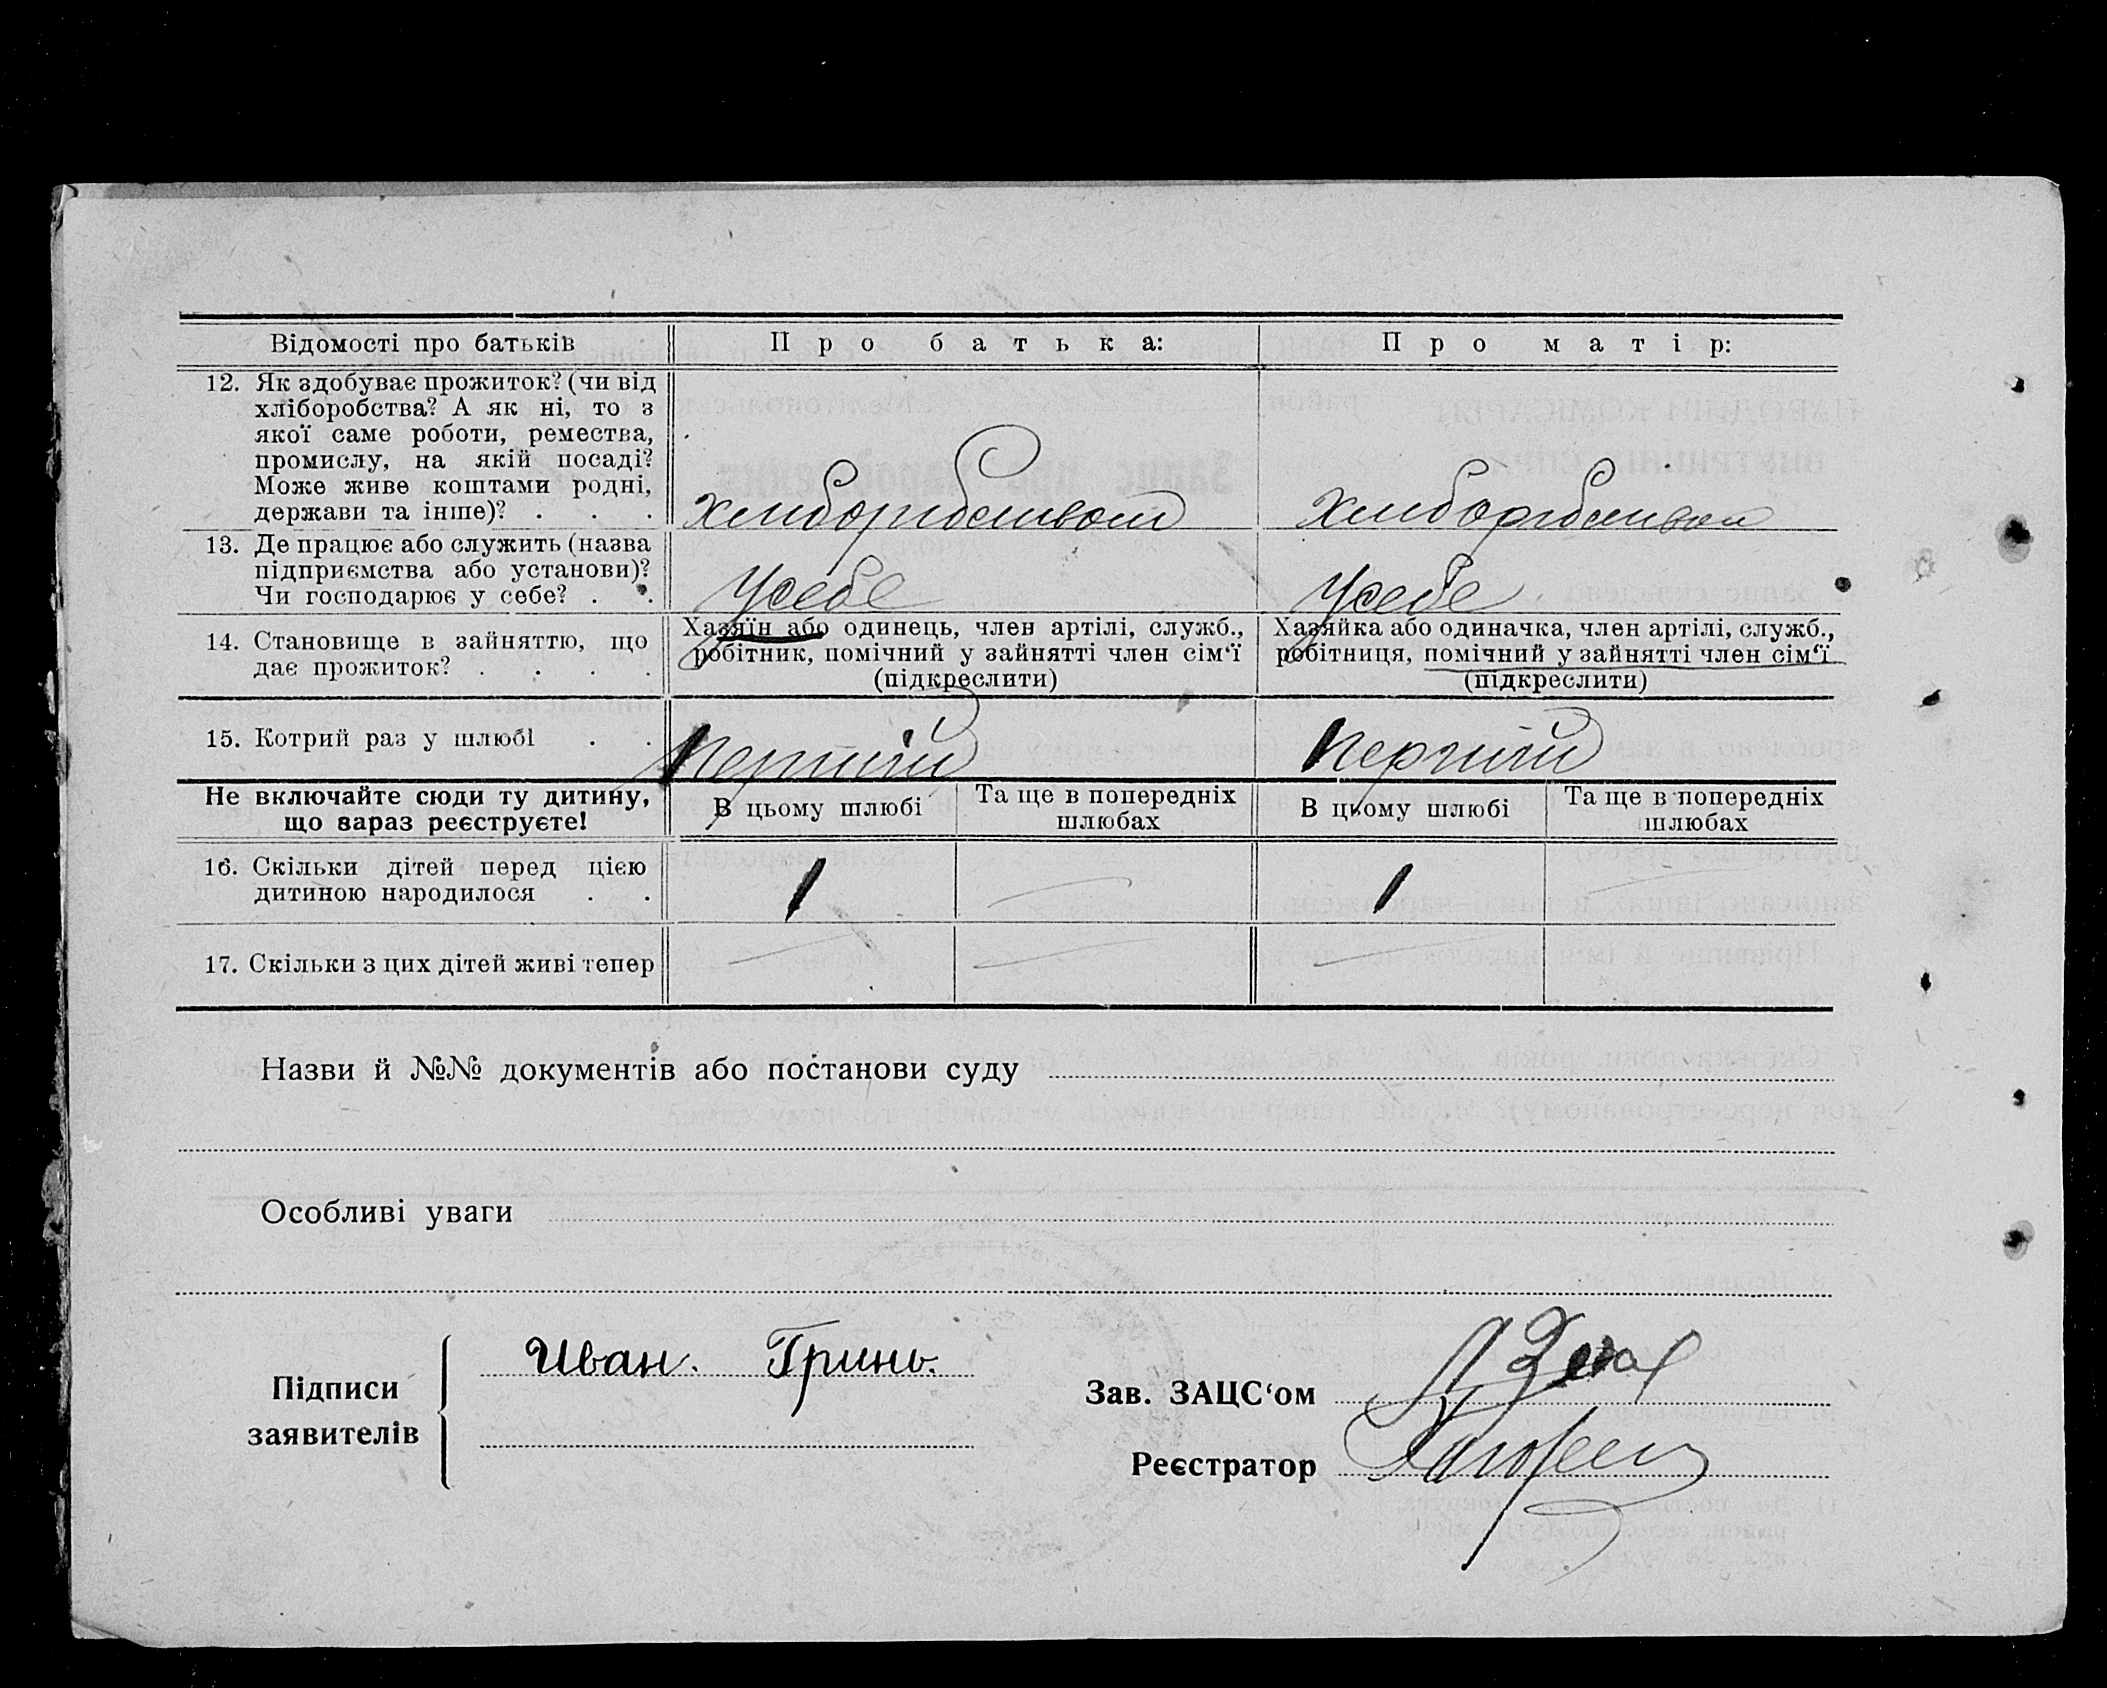 Відомості про батьків
Про батька:
Про матір:
12. Як здобуває прожиток? (чи від
хліборобства? А як ні, то з
якої саме роботи, ремества,
промислу, на якій посаді?
Може живе коштами родні,
держави та інше)? . . .
хлиборибством
хлиборибством
13. Де працює або служить (назва
підприємства або установи)?
Чи господарює у себе? . .
Усебе
Усебе
14. Становище в зайняттю, що
дає прожиток? . . . .
Хазяїн або одинець, член артілі, служб.,
робітник, помічний у зайнятті член сім‘ї
(підкреслити)
Хазяйка або одиначка, член артілі, служб.,
робітниця, помічний у зайнятті член сім‘ї
(підкреслити)
15. Котрий раз у шлюбі . .
Перший
Перший
Не включайте сюди ту дитину,
що зараз реєструєте!
В цьому шлюбі
Та ще в попередніх
шлюбах
В цьому шлюбі
Та ще в попередніх
шлюбах
16. Скільки дітей перед цією
дитиною народилося . .
1
1
17. Скільки з цих дітей живі тепер
Назви й №№ документів або постанови суду
Особливі уваги
Підписи
заявителів
Иван. Гринь.
Зав. ЗАЦС‘ом
Реєстратор